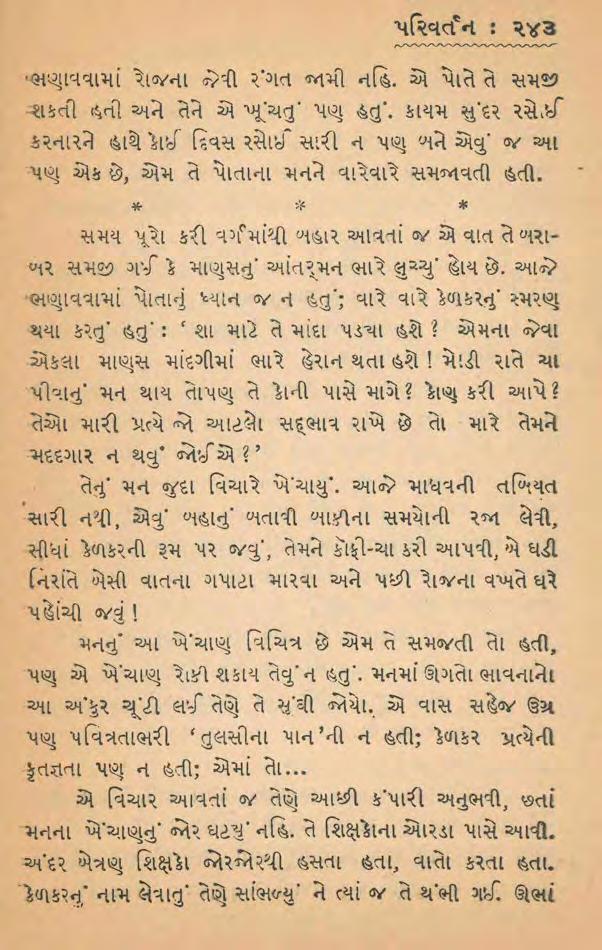 પરિવર્તન : ૨૪૩
ભણાવવામાં રોજના જેવી રંગત જામી નહિ. એ પોતે તે સમજી
શકતી હતી અને તેને એ ખૂંચતું પણ હતું. કાયમ સુંદર રસોઈ
કરનારને હાથે કોઈ દિવસ રસોઈ સારી ન પણ બને એવું જ આ
પણ એક છે, એમ તે પોતાના મનને વારેવારે સમજાવતી હતી.
* * *
સમય પૂરો કરી વર્ગમાંથી બહાર આવતાં જ એ વાત તે બરા-
બર સમજી ગઈ કે માણસનું આંતર્‌મન ભારે લુચ્ચું હોય છે. આજે
ભણાવવામાં પોતાનું ધ્યાન જ ન હતું; વારે વારે કેળકરનું સ્મરણ
થયા કરતું હતું : ‘ શા માટે તે માંદા પડ્યા હશે ? એમના જેવા
એકલા માણસ માંદગીમાં ભારે હેરાન થતા હશે ! મોડી રાતે ચા
પીવાનું મન થાય તોપણ તે કોની પાસે માગે? કોણ કરી આપે?
તેઓ મારી પ્રત્યે જો આટલો સદ્ભાવ રાખે છે તો મારે તેમને
મદદગાર ન થવું જોઈએ ?’
તેનું મન જુદા વિચારે ખેંચાયું. આજે માધવની તબિયત
સારી નથી, એવું બહાનું બતાવી બાકીના સમયોની રજા લેવી,
સીધાં કેળકરની રૂમ પર જવું, તેમને કૉફી-ચા કરી આપવી, એ ઘડી
નિરાંતે બેસી વાતના ગપાટા મારવા અને પછી રોજના વખતે ઘરે
પહોંચી જવું !
મનનું આ ખેંચાણ વિચિત્ર છે એમ તે સમજતી તો હતી,
પણ એ ખેંચાણ રોકી શકાય તેવું ન હતું. મનમાં ઊગતો ભાવનાનો
આ અંકુર ચૂંટી લઈ તેણે તે સૂંઘી જોયો. એ વાસ સહેજ ઉગ્ર
પણ પવિત્રતાભરી ‘તુલસીના પાન’ની ન હતી; કેળકર પ્રત્યેની
કૃતજ્ઞતા પણ ન હતી; એમાં તો...
એ વિચાર આવતાં જ તેણે આછી કંપારી અનુભવી, છતાં
મનના ખેંચાણનું જોર ઘટ્યું નહિ. તે શિક્ષકોના ઓરડા પાસે આવી.
અંદર બેત્રણ શિક્ષકો જોરજોરથી હસતા હતા, વાતો કરતા હતા.
કેળકરનું નામ લેવાતું તેણે સાંભળ્યું ને ત્યાં જ તે થંભી ગઈ. ઊભાં